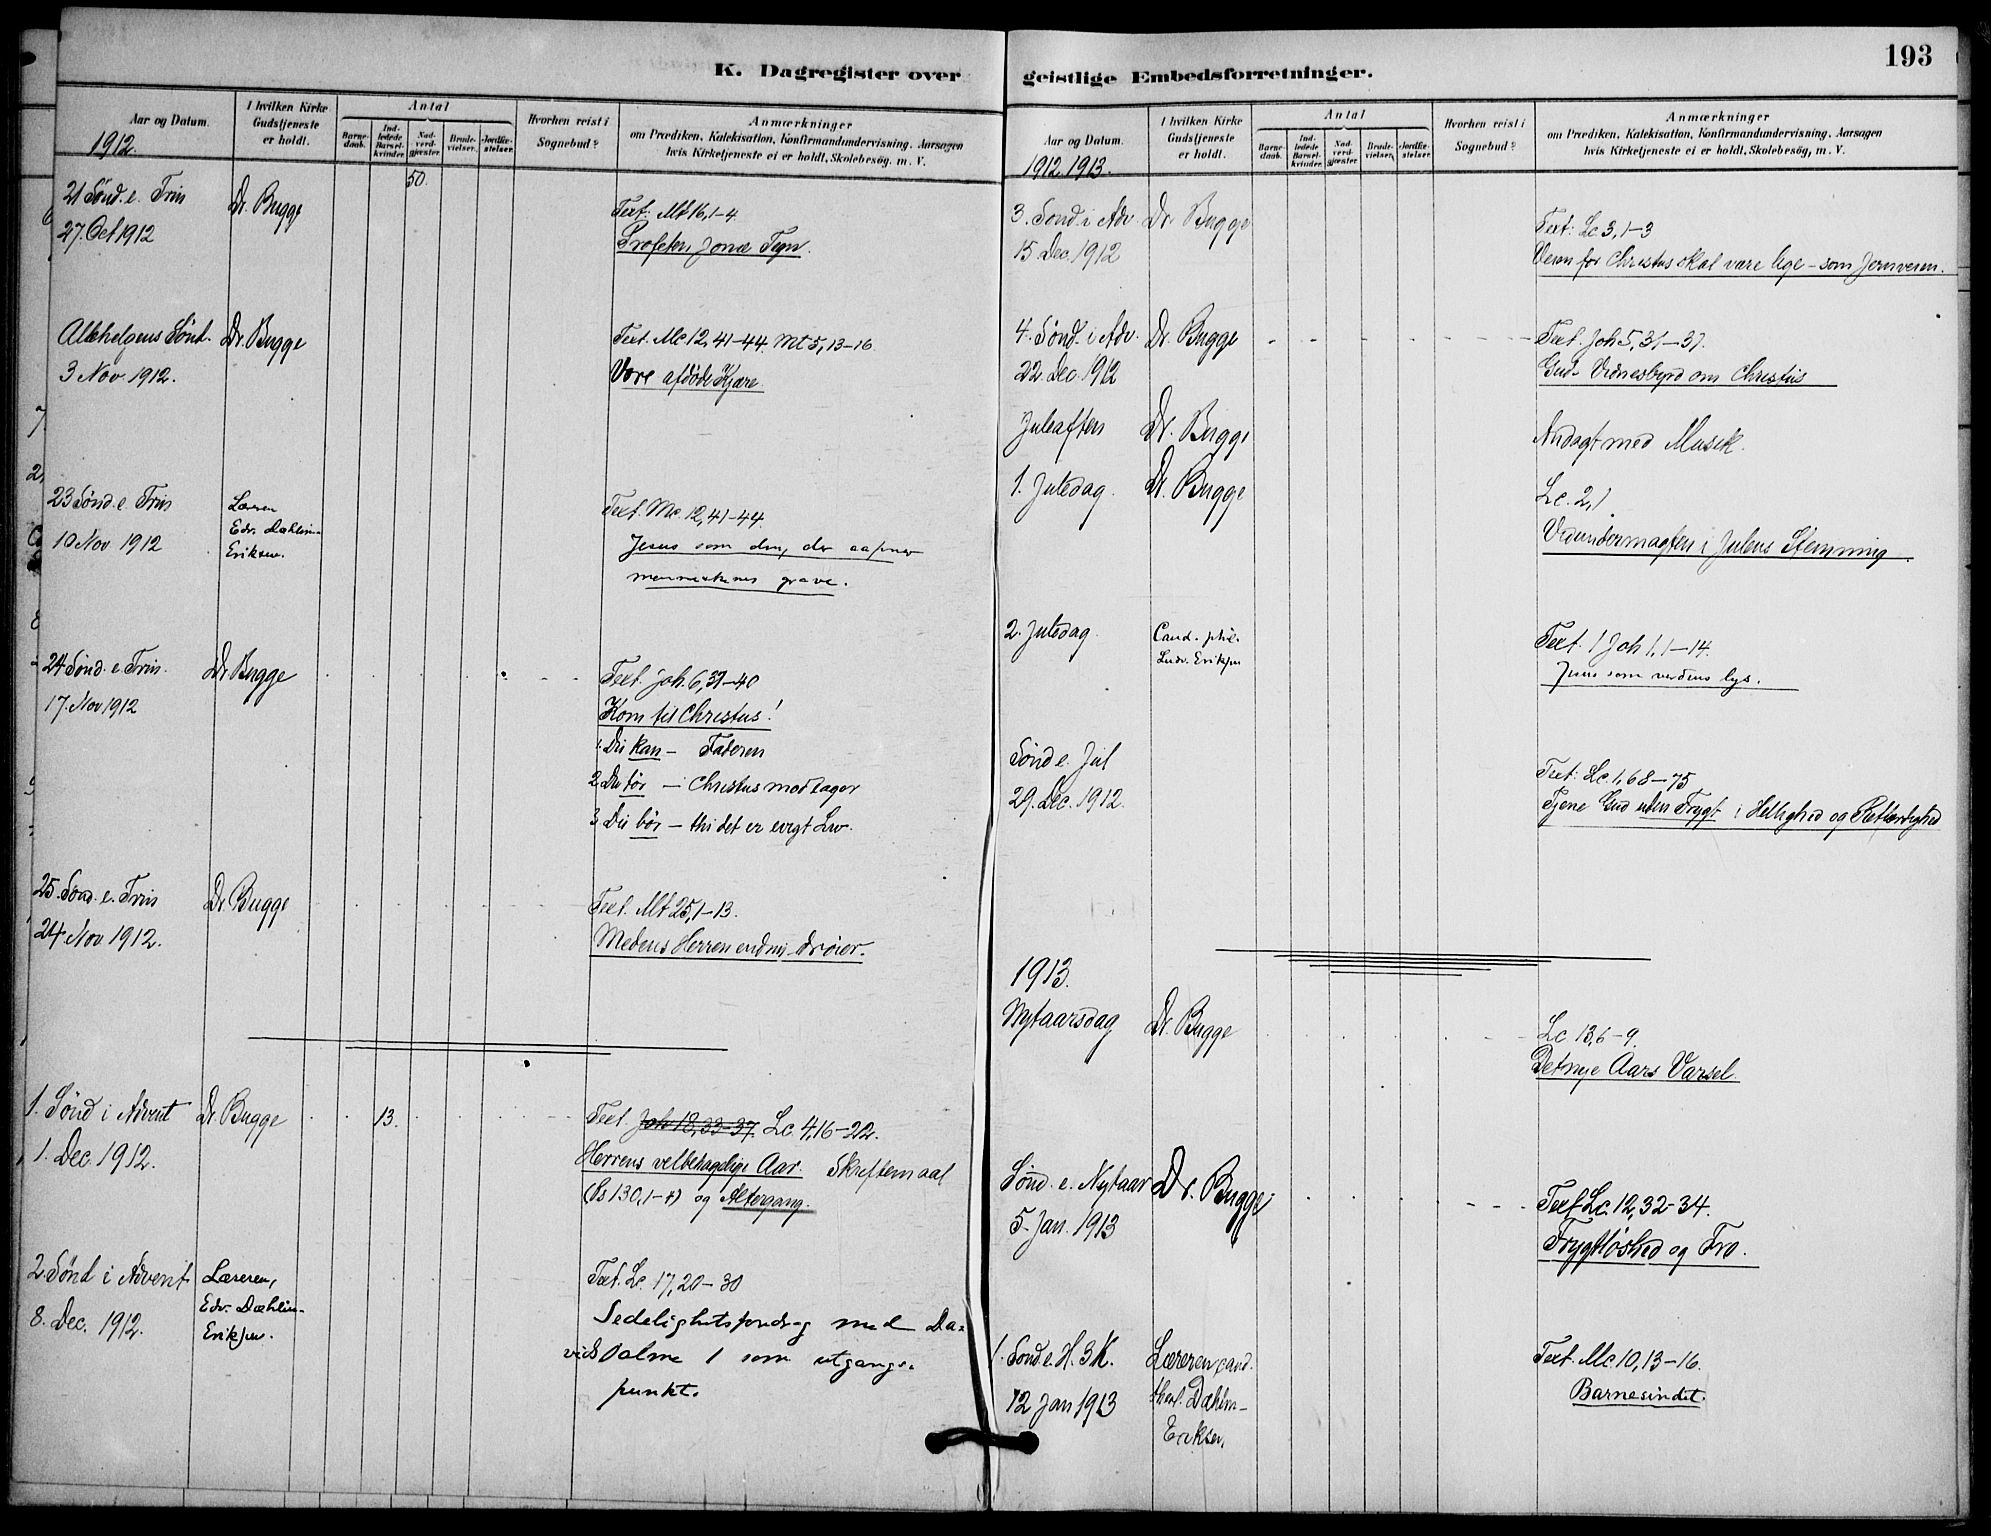 193
K. Dagregister over
geistlige Embedsforretninger.
Aar og Datum.
I hvilken Kirke Gudstjeneste er holdt.
Antal
Barne-daab.
Ind-ledede Barsel-kvinder.
Nad-verd-gjæster
Brude-vielser.
Jordfæ-stelser.
Hvorhen reist i Sognebud?
Anmærkninger
om Prædiken, Katekisation, Konfirmandundervisning, Aarsagen
hvis Kirketjeneste ei er holdt, Skolebesøg, m. V.
1912.
50.
21 Sønd. e. Trin Dr. Bugge
27. Oct 1912
Text: Mt 16,1-4
Profeten Jonæ Tegn.
Allehelgens Sønd. Dr. Bugge
3 Nov. 1912.
Text. Mc 12,41-44. Mt 5,13-16
Vore afdøde Kjære
23 Sønd. e. Trin Læreren
10 Nov 1912 Edv. Dæhlin-
Eriksen.
Text. Mc. 12,41-44.
Jesus som den, der aapner
menneskenes grave.
24 Sønd. e. Trin. Dr Bugge
17. Nov 1912
Text. Joh. 6,37-40
Kom til Christus!
1. Du kan - Faderen
2. Du tør - Christus modtager
3. Du bør - thi det er evigt Liv.
25. Sønd. e. Trin Dr. Bugge
24 Nov 1912.
Text. Mt 25,1-13.
Medens Herren endnu drøier.
1. Sønd i Advent Dr. Bugge 13.
1. Dec. 1912.
Text. Joh 18,33-37. Lc. 4,16-22.
Herrens velbehagelige Aar. Skriftemaal
(Ps 130,1-4) og Altergang.
2. Sønd i Advent Læreren,
8. Dec. 1912. Edv. Dæhlin-
Eriksen.
Text. Lc. 17,20-30
Sedelighetsforedrag med Da-
vids Salme 1 som utgangs-
punkt.
Aar og Datum.
I hvilken Kirke Gudstjeneste er holdt.
Antal
Barne-daab.
Ind-ledede Barsel-kvinder.
Nad-verd-gjæster
Brude-vielser.
Jordfæ-stelser.
Hvorhen reist i Sognebud?
Anmærkninger
om Prædiken, Katekisation, Konfirmandundervisning, Aarsagen
hvis Kirketjeneste ei er holdt, Skolebesøg, m. V.
1912. 1913.
3. Sønd i Adv. Dr. Bugge
15 Dec. 1912
Text: Lc 3,1-3
Veien for Christus skal være lige - som Jernveien.
4. Sønd. i Adv. Dr. Bugge
22. Dec. 1912
Text. Joh 5,31-37.
Guds Vidnesbyrd om Christus
Juleaften Dr. Bugge
Andagt med Musik.
1. Juledag. Dr. Bugge
Lc. 2,1
Vidundermagten i Julens Stemning.
2. Juledag. Cand. phil.
Ludv. Eriksen
Text. 1 Joh 1,1-14.
Jesus som verdens lys.
Sønd e. Jul
29. Dec. 1912.
Text: Lc. 1,68-75
Tjene Gud uden Frygt i Hellighed og Retfærdighed
1913.
Nytaarsdag Dr. Bugge
Lc 13,6-9.
Det nye Aars Varsel.
Sønd. e. Nytaar Dr. Bugge
5. Jan. 1913
Text Lc. 12,32-34.
Frygtløshed og Tro.
1. Sønd. e. H. 3 K. Læreren, cand.
12 Jan 1913 theol. Dæhlin-
Eriksen.
Text. Mc. 10,13-16.
Barnesindet.